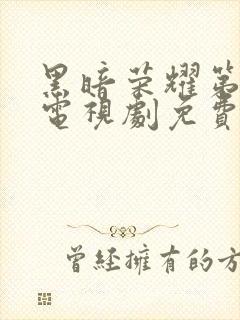 黑暗荣耀第
電視劇免費
曾经擁有的方